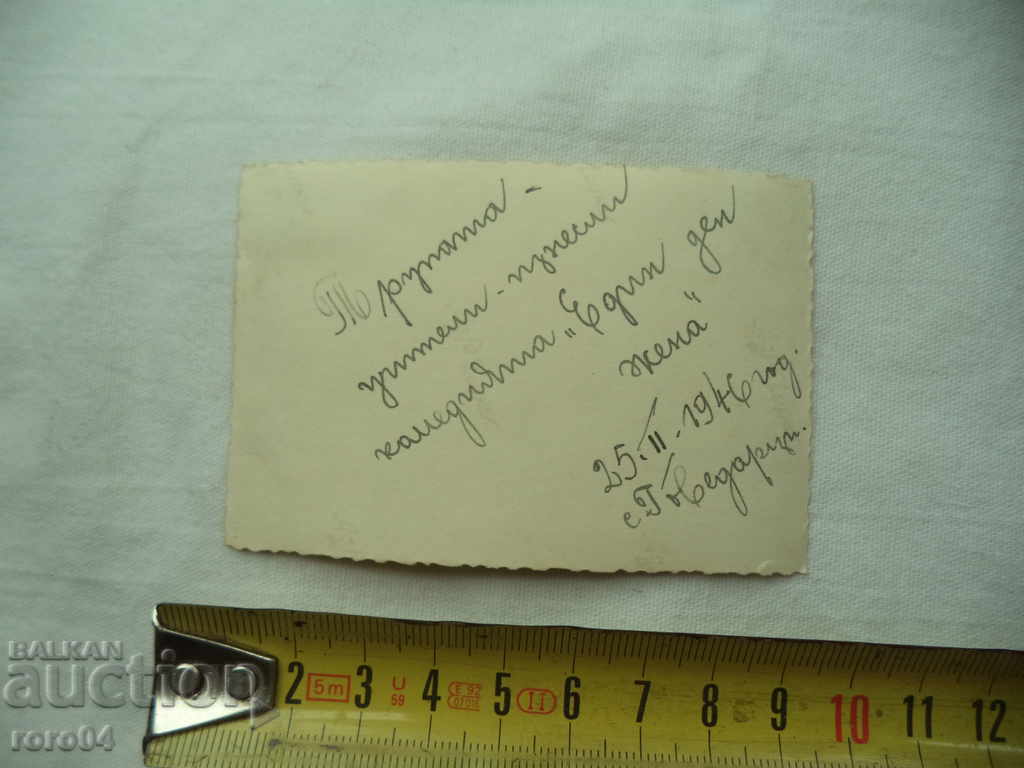 Трупата -
учители - изнесли
комедията „Един ден
жена"
25.II.1946 год.
с. Говедарци.
BALKAN
auction
roro04
2 5m 3 U 59 4 E 92 5 II 6 7 8 9 10 11 12